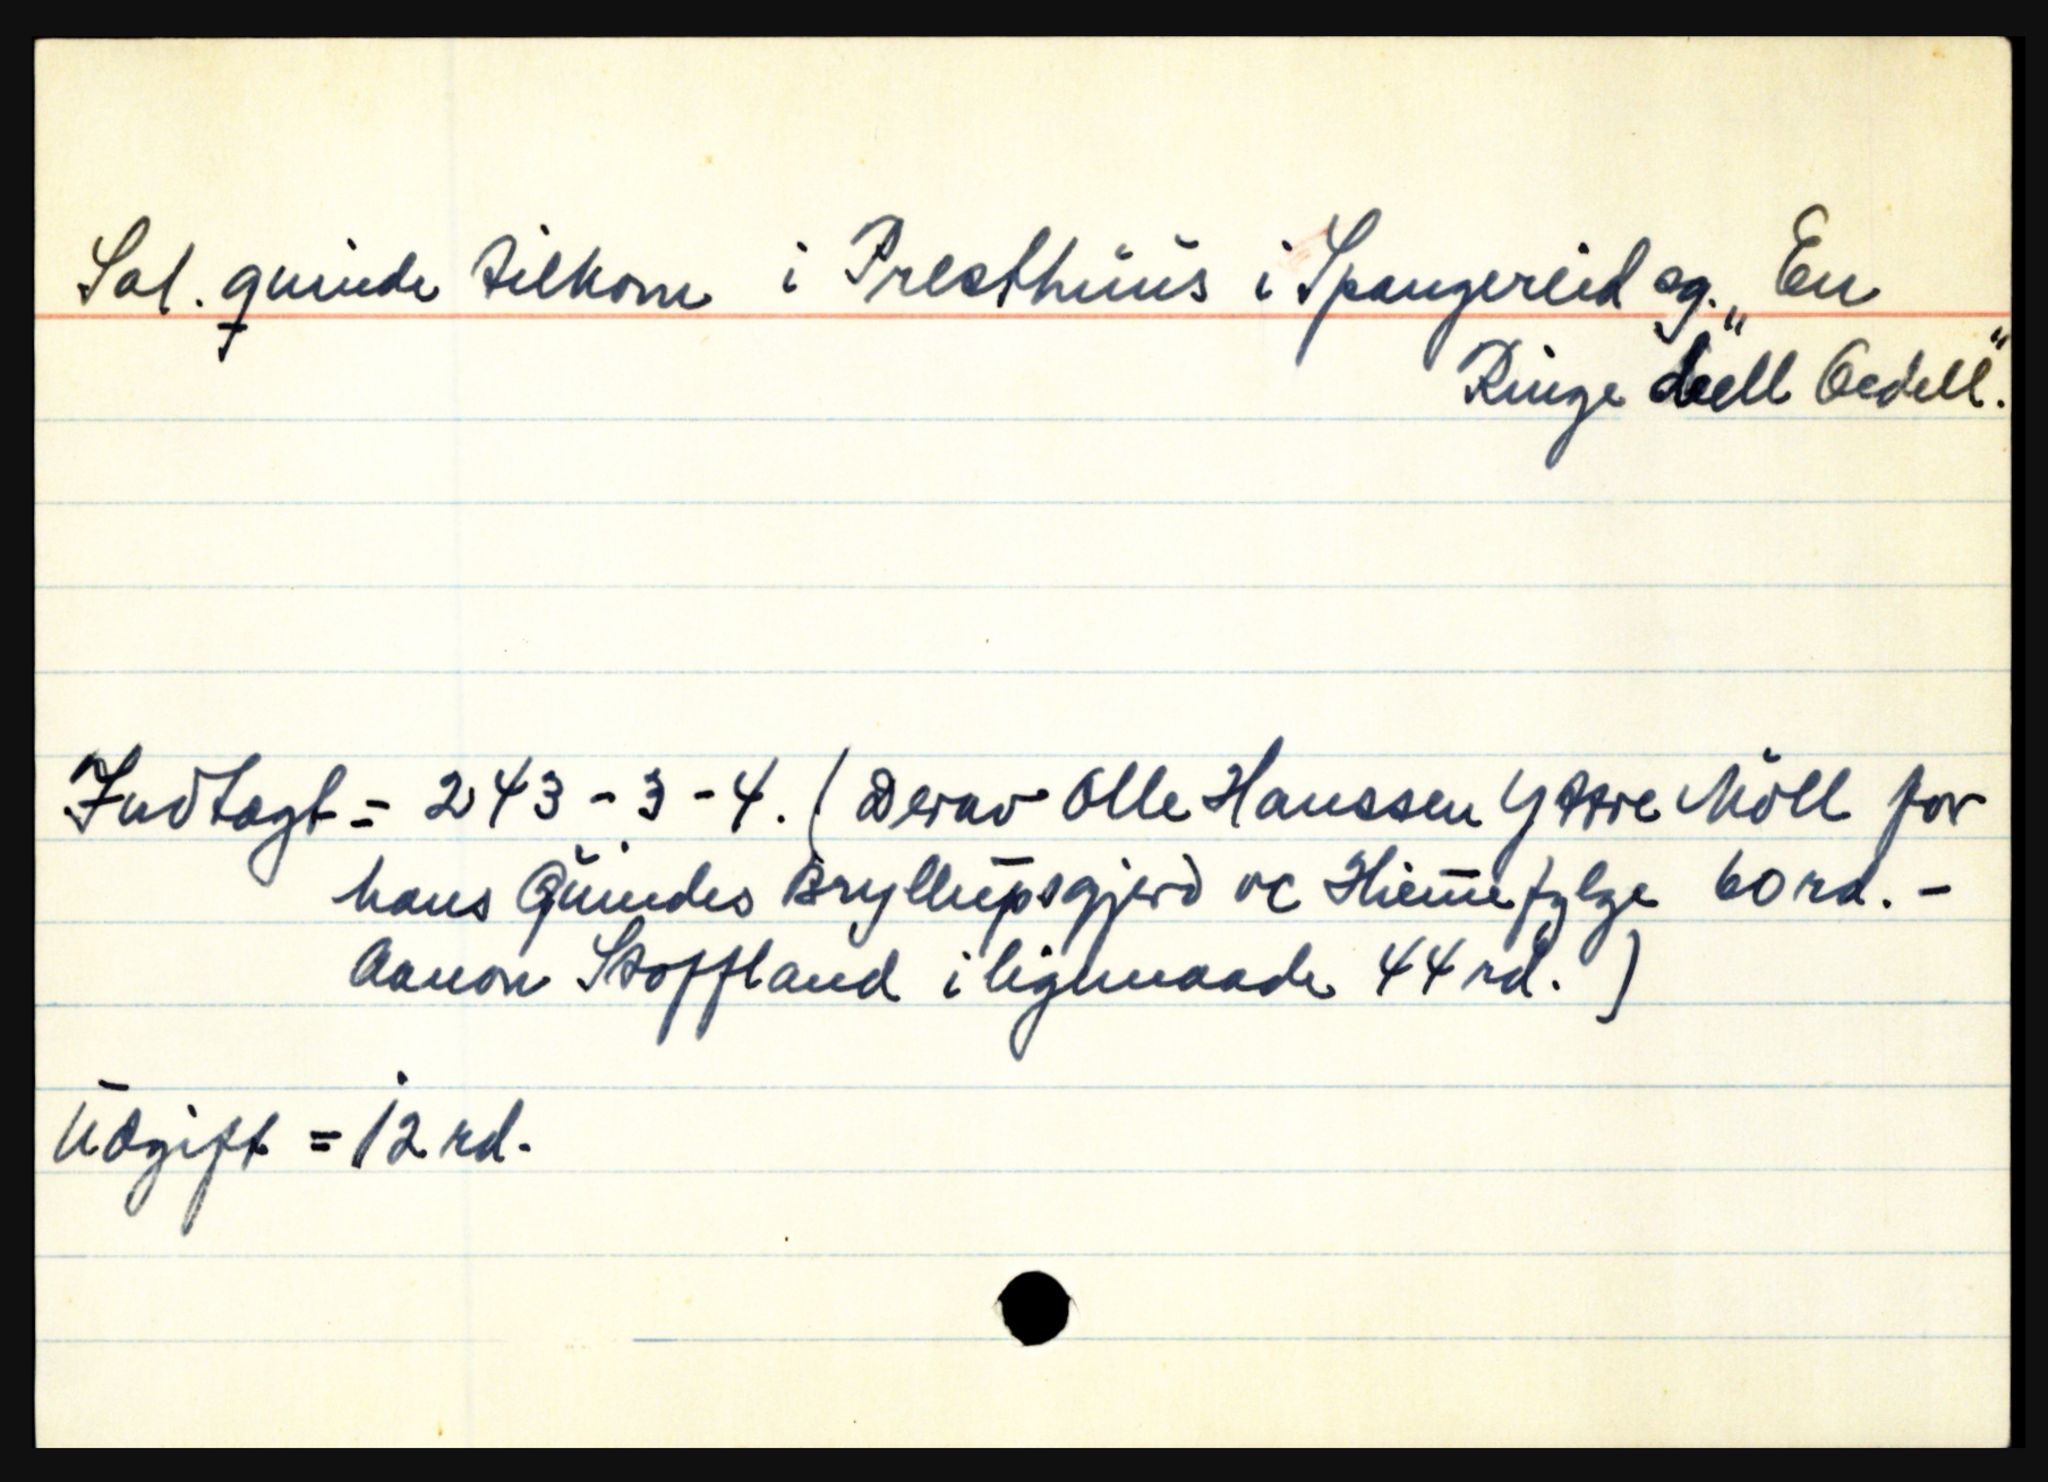 Sal. quinde tilkom i Presthuus i Spangereid sg. „En
Ringe deell Oedell."
Indtægt = 243 - 3 - 4. (Derav Olle Hanssen Yttre Möll for
hans Quindes Bryllupsgjerd oc Hiemefylge 60 rd. -
Aanon Stoffland i ligemaade 44 rd.)
Udgift = 12 rd.